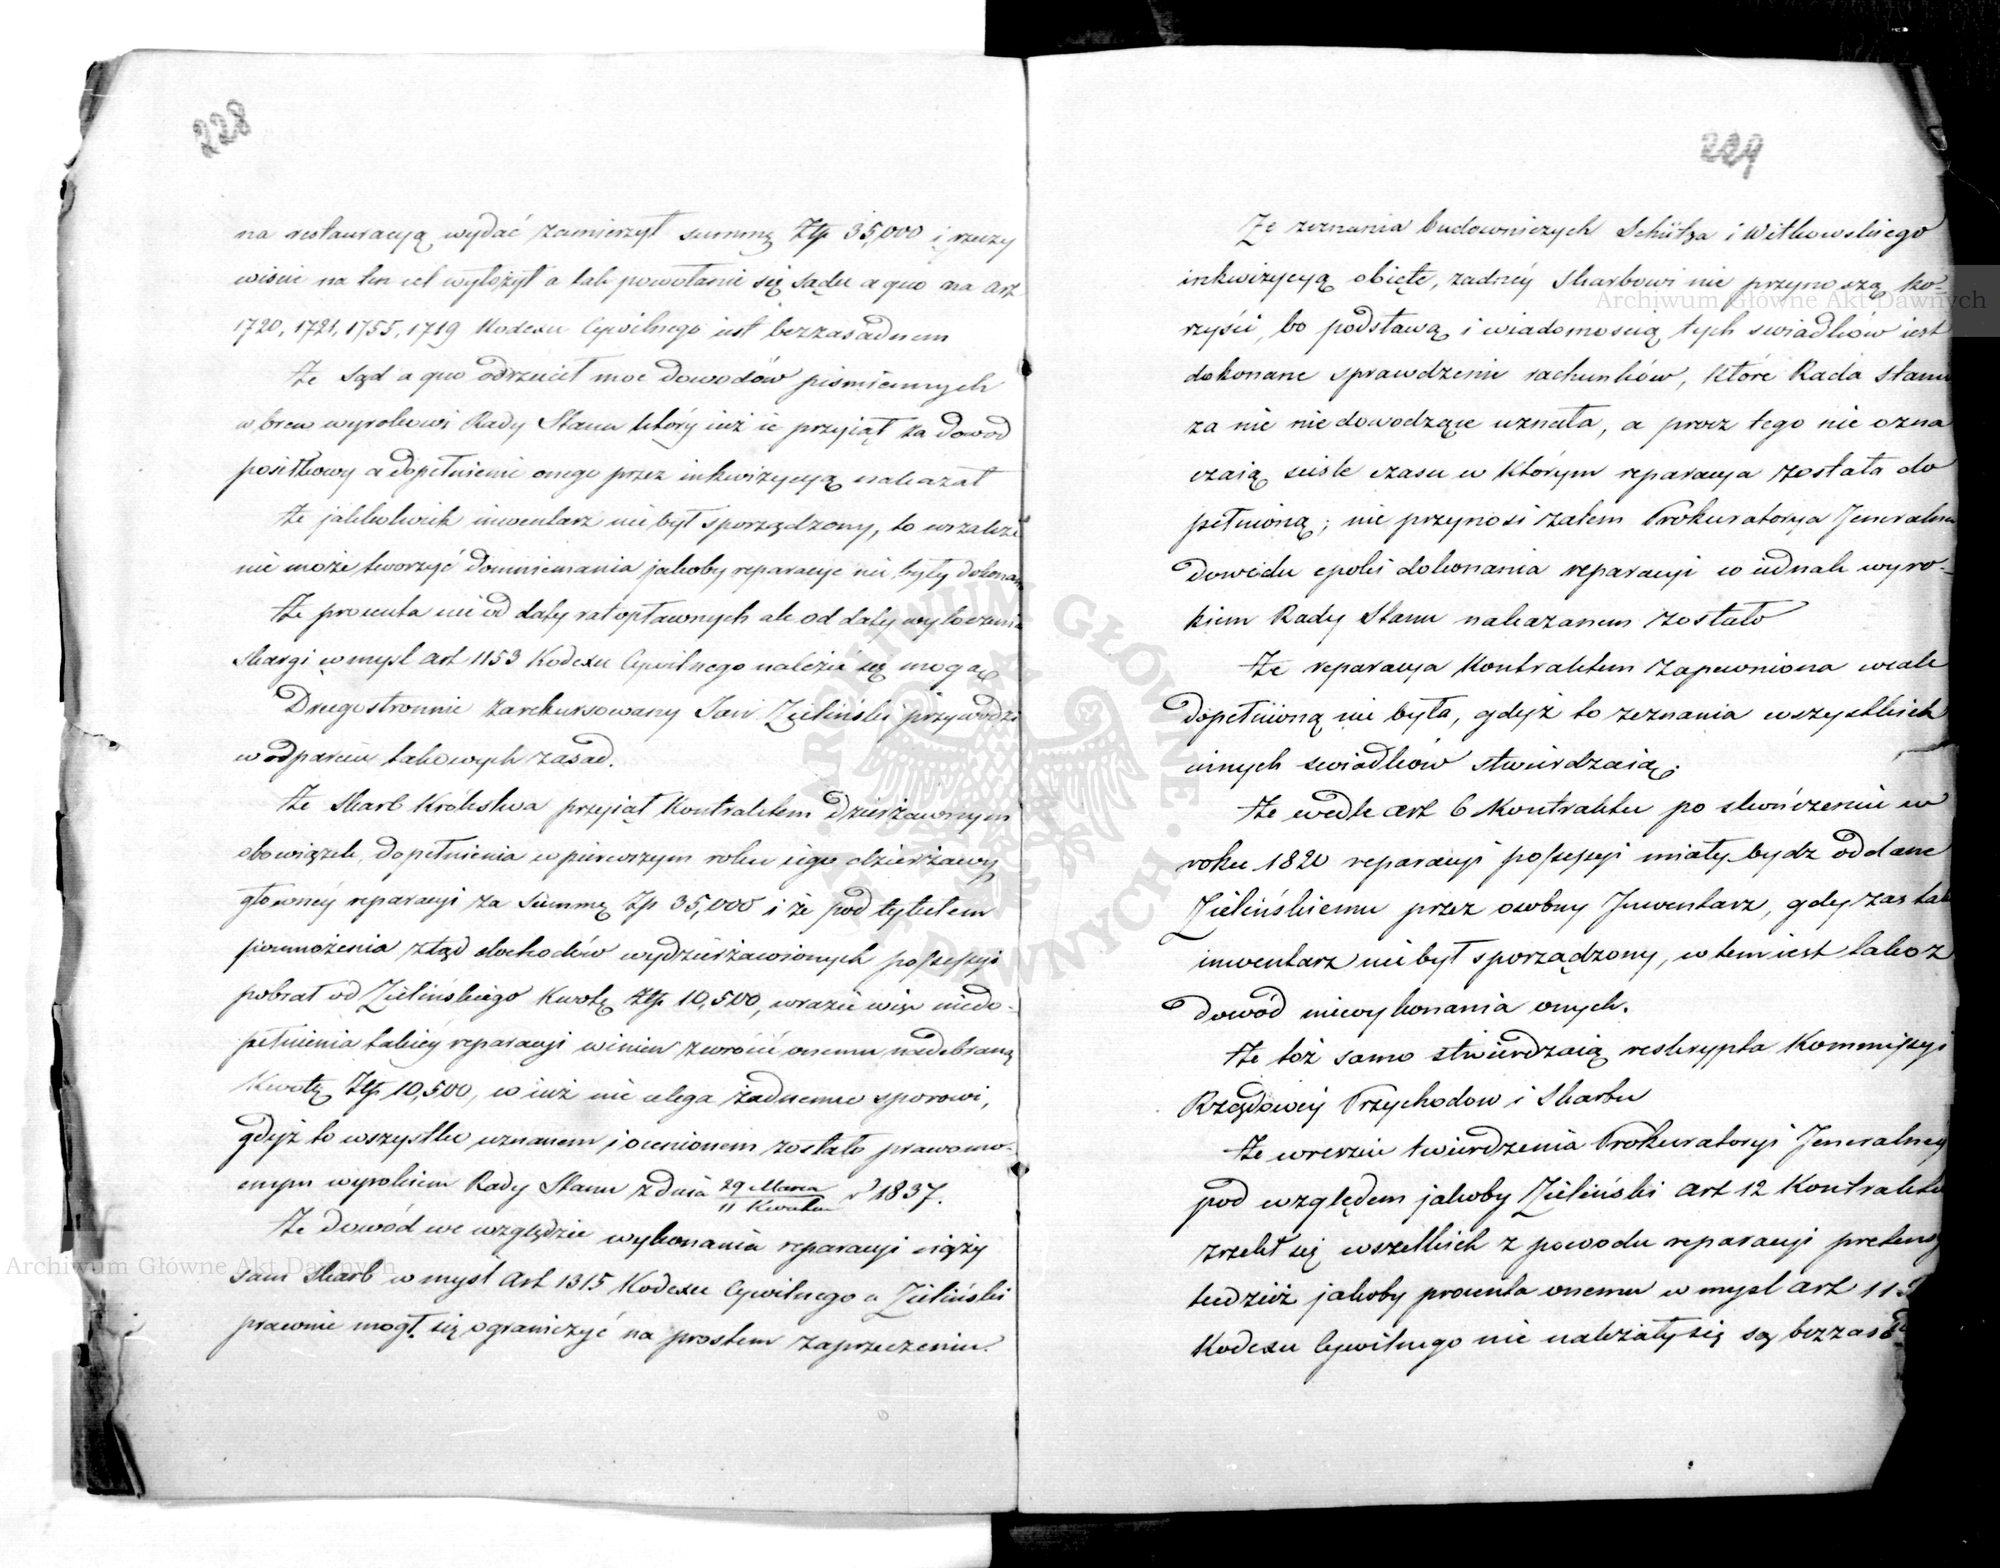 228
na restauracyą wydać zamierzył summę Złp 35,000 i rzeczy
wiście na ten cel wyłożył a tak powołanie się Sądu a quo na Art
1720, 1721, 1755, 1719 Kodexu Cywilnego iest bezzasadnem
Że Sąd a quo odrzucił moc dowodów piśmiennych
wbrew wyrokowi Rady Stanu który iuż ie przyiął za dowod
posiłkowy a dopełnienie onego przez inkwizycyą nakazał
Że jakkolwiek inwentarz nie był sporządzony, to wszakże
nie może tworzyć domniemania jakoby reparacye nie były dokonane
Że procenta nie od daty rat opławnych ale od daty wytoczenia
skargi w mysl Art 1153 Kodexu Cywilnego należeć się mogą
Drugostronnie zarekursowany Jan Zieliński przywodzi
w odparciu takowych zasad.
Że Skarb Królestwa przyiął Kontraktem dzierżawnym
obowiązek dopełnienia w pierwszym roku iego dzierżawy
głowney reparacyi za Summę Złp 35,000 i że pod tytułem
pomnożenia ztąd dochodów wydzierżawionych possessyi
pobrał od Zielińskiego Kwotę Złp 10,500, w razie więc niedo-
pełnienia takiéy reparacyi winien zwrócić onemu nadebraną
Kwotę Złp 10,500, co iuż nie ulega żadnemu sporowi,
gdyż to wszystko uznanem i ocenionem zostało prawomo-
cnym wyrokiem Rady Stanu z dnia 29 Marca / 11 Kwietnia r 1837.
Że dowód we względzie wykonania reparacyi ciąży
sam Skarb w mysl Art 1315 Kodexu Cywilnego a Zieliński
prawnie mogł się ograniczyć na prostem zaprzeczeniu.
229
Ze zeznania budowniczych Schütza i Witkowskiego
inkwizycyą obięte, żadnéy Skarbowi nie przynoszą ko-
rzyści, bo podstawą i wiadomością tych swiadków iest
dokonane sprawdzenie rachunków, które Rada Stanu
za nic niedowodzące uznała, a procz tego nie ozna
czaią scisle czasu w którym reparacya została do
pełnioną; nie przynosi zatem Prokuratorya Jeneralna
dowodu epoki dokonania reparacyi co iednak wyro-
kiem Rady Stanu nakazanem zostało
Że reparacya Kontraktem zapewniona wcale
dopełnioną nie była, gdyż to zeznania wszystkich
innych swiadków stwierdzaią.
Że wedle Art 6 Kontraktu po skończeniu w
roku 1820 reparacyi possessyi miały bydz oddane
Zielińskiemu przez osobny Inwentarz, gdy zas taki
inwentarz nie był sporządzony, w tem iest takoż
dowód niewykonania onych.
Że toż samo stwierdzaią reskrypta Kommissyi
Rządowéy Przychodow i Skarbu
Że wreszcie twierdzenia Prokuratoryi Jeneralney
pod względem jakoby Zieliński Art 12 Kontraktu
zrzekł się wszelkich z powodu reparacyi pretensy
tudzież jakoby procenta onemu w mysl Art 115
Kodexu Cywilnego nie należały się są bezzasad
Archiwum Główne Akt Dawnych
Archiwum Główne Akt Dawnych
ARCHIWUM GŁÓWNE AKT DAWNYCH